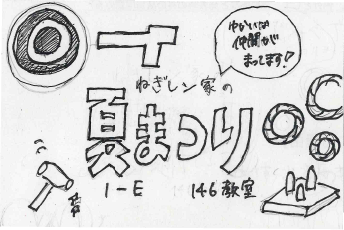 ゆかいな
仲間が
まってます!
ねぎしン家の
夏まつり
1-E 146教室